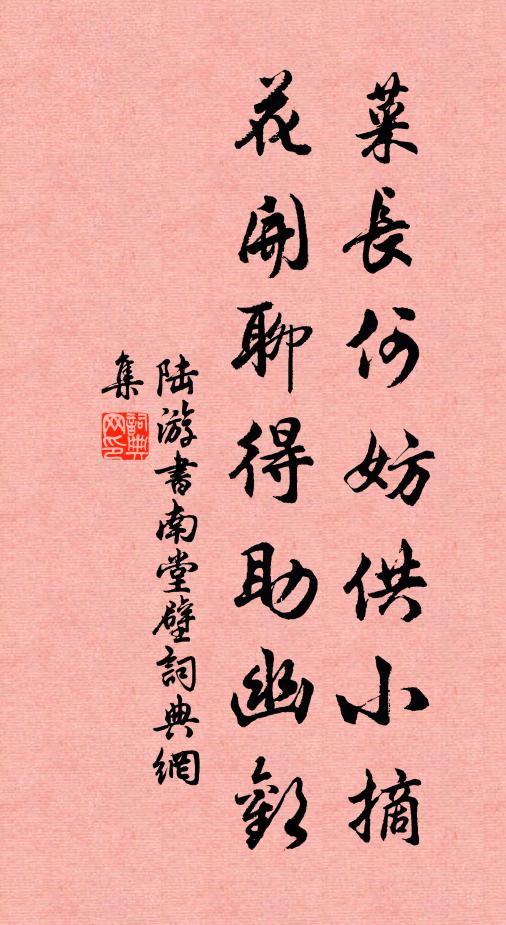 菜長何妨供小摘
花開聊得助幽歡
陆游書南堂壁詞典網
集
詞典
网印